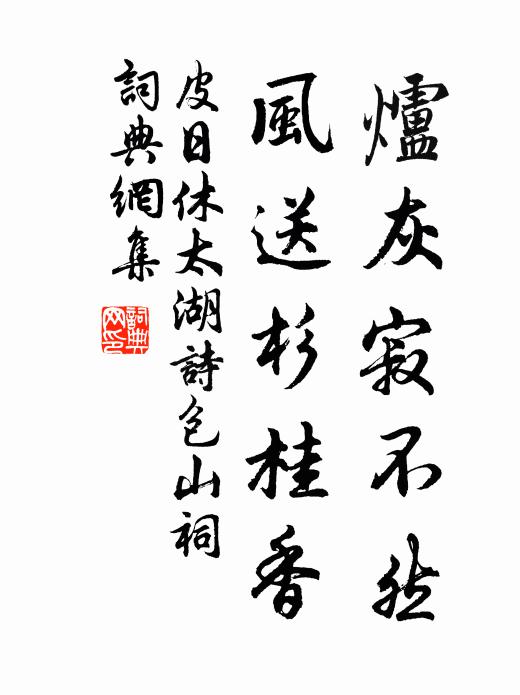 爐灰寂不然
風送杉桂香
皮日休太湖詩包山祠
詞典網集
詞典网印